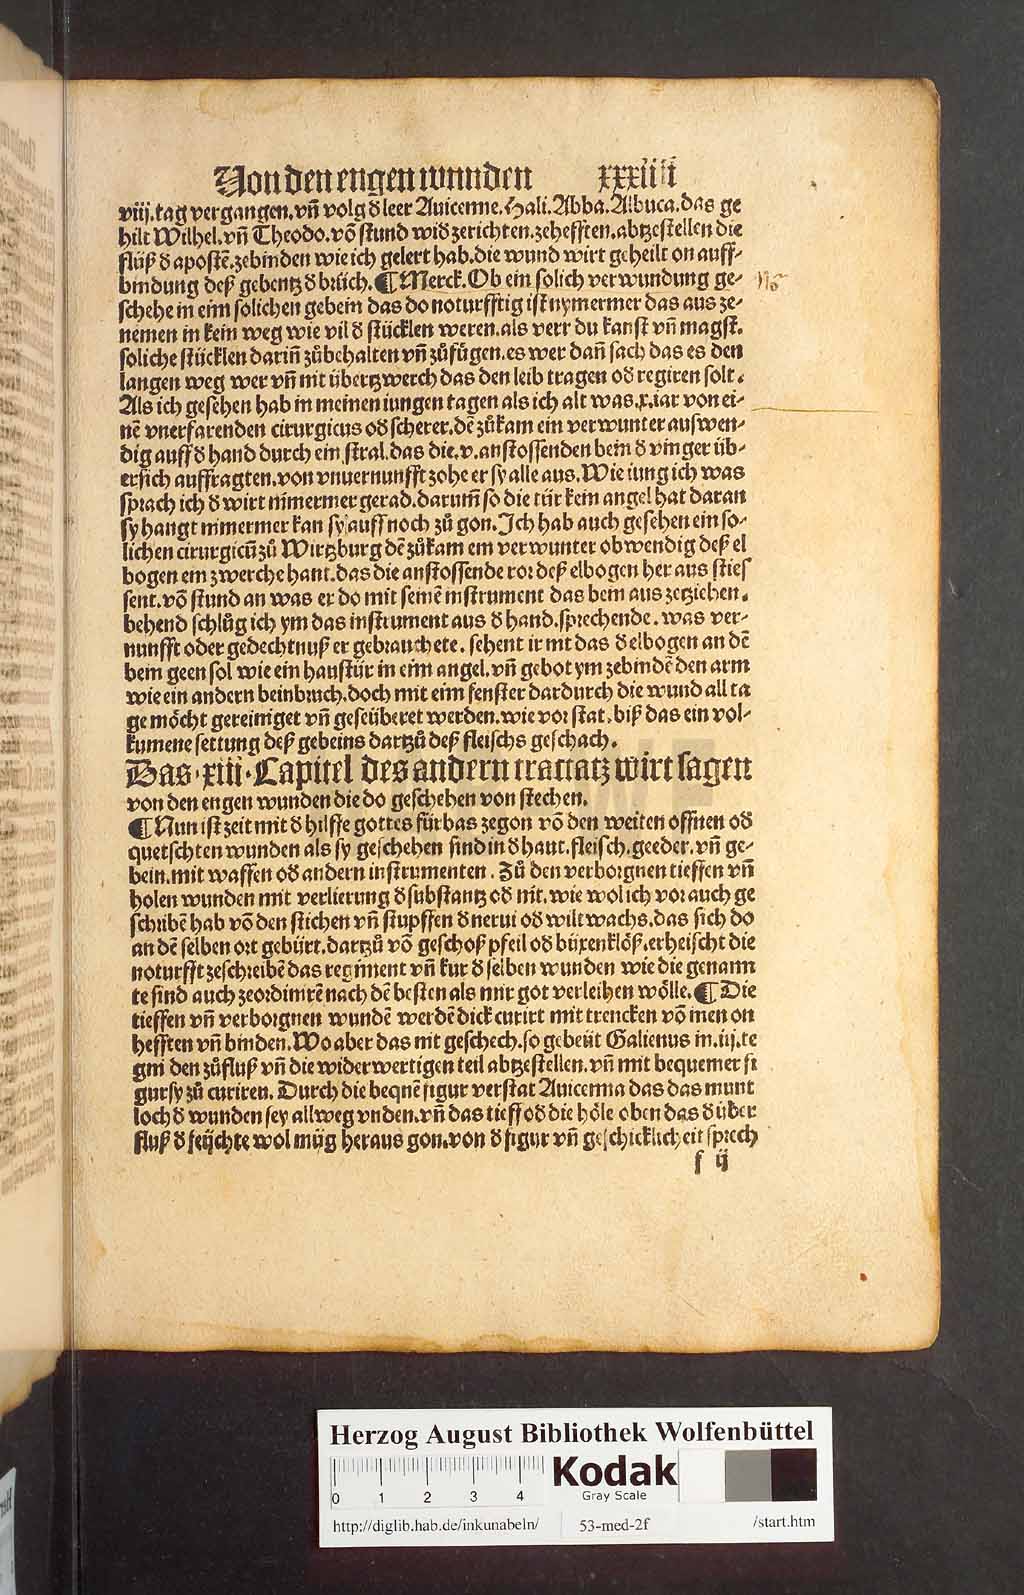 Von den engen wunden xxxiiii
viij. tag vergangen. vñ volg d̕ leer Auicenne. Hali. Abba. Albuca. das ge
hilt Wilhel. vñ Theodo. vō stund wid̕ zerichten. zehefften. abtzestellen die
flüß d̕ apostē. zebinden wie ich gelert hab. die wund wirt geheilt on auff⸗
bindung deß gebentz d̕ brüch. ¶ Merck. Ob ein solich verwundung ge⸗
schehe in eim solichen gebein das do noturfftig ist nymermer das aus ze⸗
nemen in kein weg wie vil d̕ stücklen weren. als verr du kanst vñ magst.
soliche stücklen dariñ zůbehalten vñ zůfügen. es wer dañ sach das es den
langen weg wer vñ nit übertzwerch das den leib tragen od̕ regiren solt.
Als ich gesehen hab in meinen iungen tagen als ich alt was. x. iar von ei⸗
nē vnerfarenden cirurgicus od̕ scherer. dē zůkam ein verwunter auswen⸗
dig auff d̕ hand durch ein stral. das die. v. anstossenden bein d̕ vinger üb⸗
ersich auffragten. von vnuernunfft zohe er sy alle aus. Wie iung ich was
sprach ich d̕ wirt nimermer gerad. darum̄ so die tür kein angel hat daran
sy hangt nimermer kan sy auff noch zů gon. Ich hab auch gesehen ein so⸗
lichen cirurgicū zů Wirtzburg dē zůkam ein verwunter obwendig deß el
bogen ein zwerche hant. das die anstossende ror deß elbogen her aus sties
sent. vō stund an was er do mit seinē instrument das bein aus zetziehen.
behend schlůg ich ym das instrument aus d̕ hand. sprechende. was ver⸗
nunfft oder gedechtnuß er gebrauchete. sehent ir nit das d̕ elbogen an dē
bein geen sol wie ein haustür in eim angel. vñ gebot ym zebindē den arm
wie ein andern beinbruch. doch mit eim fenster dardurch die wund all ta
ge möcht gereiniget vñ geseüberet werden. wie vor stat. biß das ein vol⸗
kumene settung deß gebeins dartzů deß fleischs geschach.
Das. xiii. Capitel des andern tractatz wirt sagen
von den engen wunden die do geschehen von stechen.
¶ Nun ist zeit mit d̕ hilffe gottes fürbas zegon vō den weiten offnen od̕
quetschten wunden als sy geschehen sind in d̕ haut. fleisch. geeder. vñ ge⸗
bein. mit waffen od̕ andern instrumenten. Zů den verborgnen tieffen vñ
holen wunden mit verlierung d̕ substantz od̕ nit. wie wol ich vor auch ge
schribē hab vō den stichen vñ stupffen d̕ nerui od̕ wiltwachs. das sich do
an dē selben ort gebürt. dartzů vō geschoß pfeil od̕ büxenklöß. erheischt die
noturfft zeschreibē das regiment vñ kur d̕ selben wunden wie die genann
te sind auch zeordinirē nach dē besten als mir got verleihen wölle. ¶ Die
tieffen vñ verborgnen wundē werdē dick curirt mit trencken vō inen on
hefften vñ binden. Wo aber das nit geschech. so gebeüt Galienus in. iij. te
gni den zůfluß vñ die widerwertigen teil abtzestellen. vñ mit bequemer fi
gur sy zů curiren. Durch die beqnē figur verstat Auicenna das das munt
loch d̕ wunden sey allweg vnden. vñ das tieff od̕ die höle oben das d̕ über
fluß d̕ feüchte wol müg heraus gon. von d̕ figur vñ geschicklicheit sprech
f ij
Herzog August Bibliothek Wolfenbüttel
0 1 2 3 4
Kodak
Gray Scale
http://diglib.hab.de/inkunabeln/ 53-med-2f /start.htm